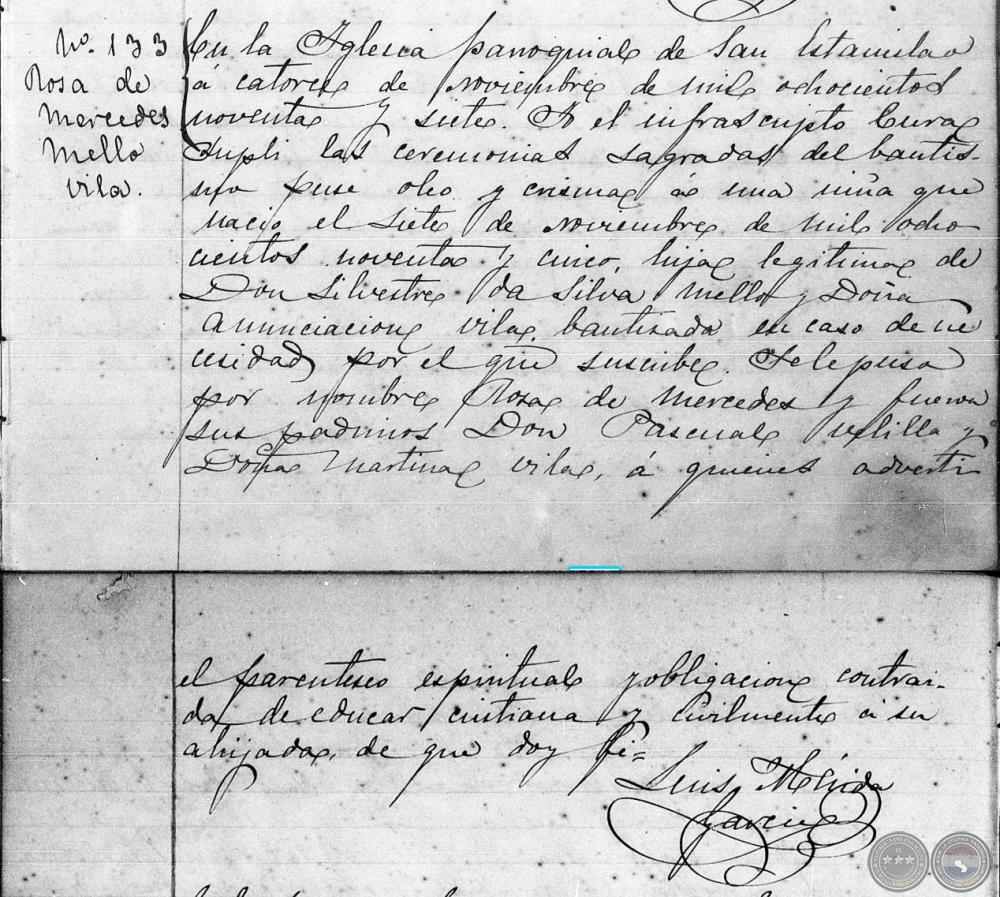 No. 133
Rosa de
Mercedes
Mello
vila.
En la Iglesia parroquial de San Estanislao
á catorce de noviembre de mil ochocientos
noventa y siete. Yo el infrascripto Cura
supli las ceremonias sagradas del bautis-
mo puse oleo y crisma á una niña que
nacio el siete de noviembre de mil ocho
cientos noventa y cinco, hija legitima de
Don Silvestre da Silva Mello y Doña
Anunciacion vila, bautisada en caso de ne
cesidad por el que suscribe. Se le puso
por nombre Rosa de Mercedes y fueron
sus padrinos Don Pascual velilla y
Doña Martina vila, á quienes adverti
el parentesco espiritual y obligacion contrai-
da de educar cristiana y civilmente á su
ahijada, de que doy fé=
Luis Mérida
Garcia